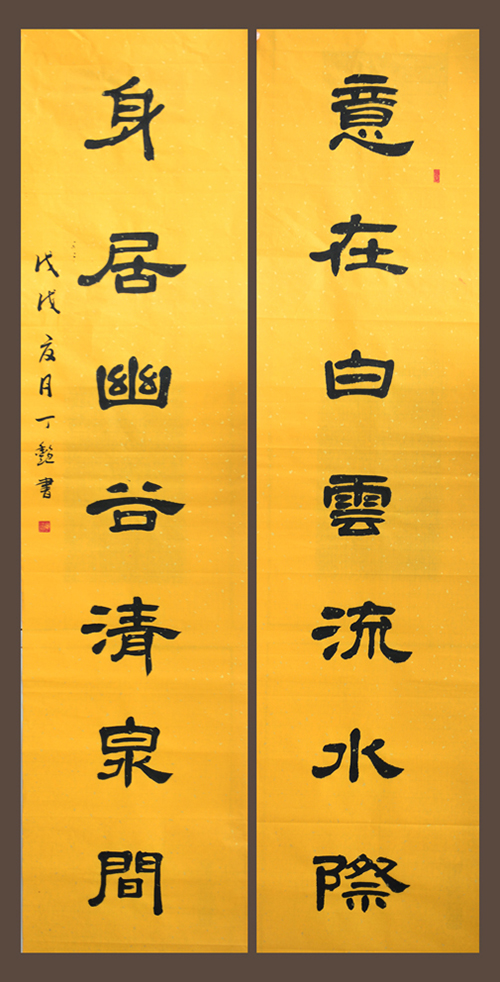 意在白雲流水際
身居幽谷清泉間
戊戌夏月丁書